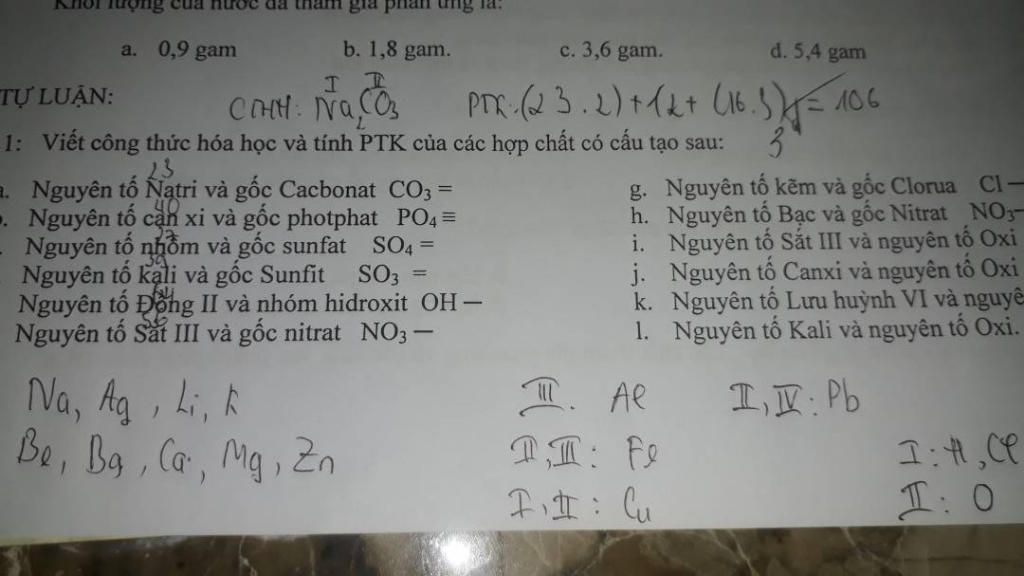 Khối lượng của nước đã tham gia phản ứng là:
a. 0,9 gam b. 1,8 gam. c. 3,6 gam. d. 5,4 gam
I II
TỰ LUẬN: CTHH: Na₂CO₃ PTK: (23.2) + 12 + (16.3) = 106
3
1: Viết công thức hóa học và tính PTK của các hợp chất có cấu tạo sau:
23
Nguyên tố Natri và gốc Cacbonat CO₃ = g. Nguyên tố kẽm và gốc Clorua Cl —
40
Nguyên tố can xi và gốc photphat PO₄ ≡ h. Nguyên tố Bạc và gốc Nitrat NO₃—
27
Nguyên tố nhôm và gốc sunfat SO₄ = i. Nguyên tố Sắt III và nguyên tố Oxi
39
Nguyên tố kali và gốc Sunfit SO₃ = j. Nguyên tố Canxi và nguyên tố Oxi
64
Nguyên tố Đồng II và nhóm hidroxit OH — k. Nguyên tố Lưu huỳnh VI và nguyê
56
Nguyên tố Sắt III và gốc nitrat NO₃ — l. Nguyên tố Kali và nguyên tố Oxi.
Na, Ag, Li, K III. Al II, IV: Pb
Be, Ba, Ca, Mg, Zn II, III: Fe I: H, Cl
I, II: Cu II: O